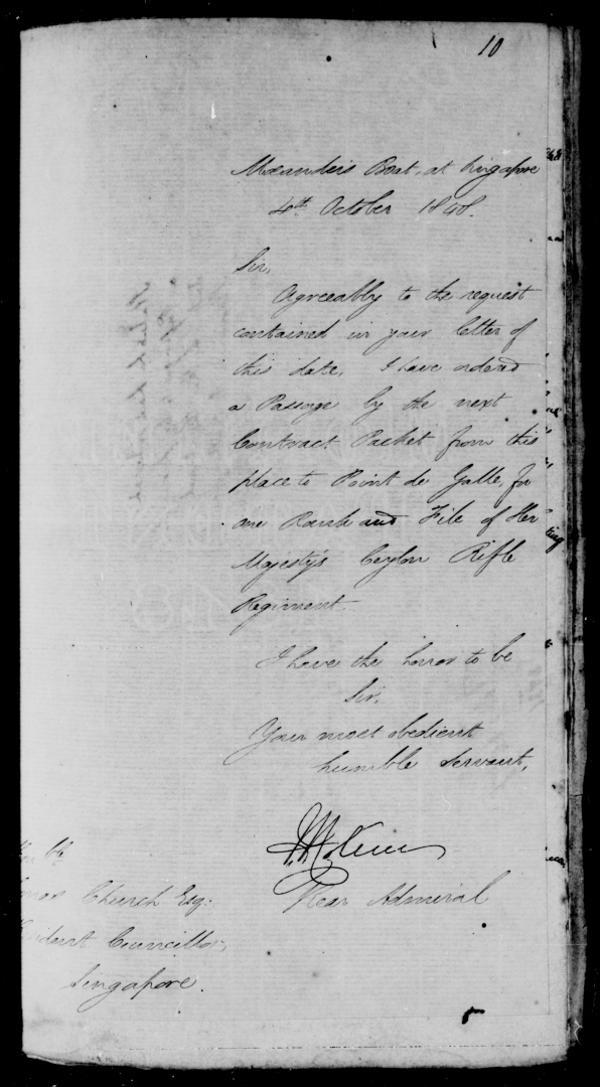 10
Mæander's Boat, at Singapore
4th October 1848.
Sir,
Agreeably to the request
contained in your letter of
this date, I have ordered
a Passage by the next
Contract Packet from this
place to Point de Galle, for
one Rank and File of Her
Majesty's Ceylon Rifle
Regiment.
I have the honor to be
Sir,
Your most obedient
humble Servant,
Rear Admiral
Church Esq.
Councillor,
Singapore.